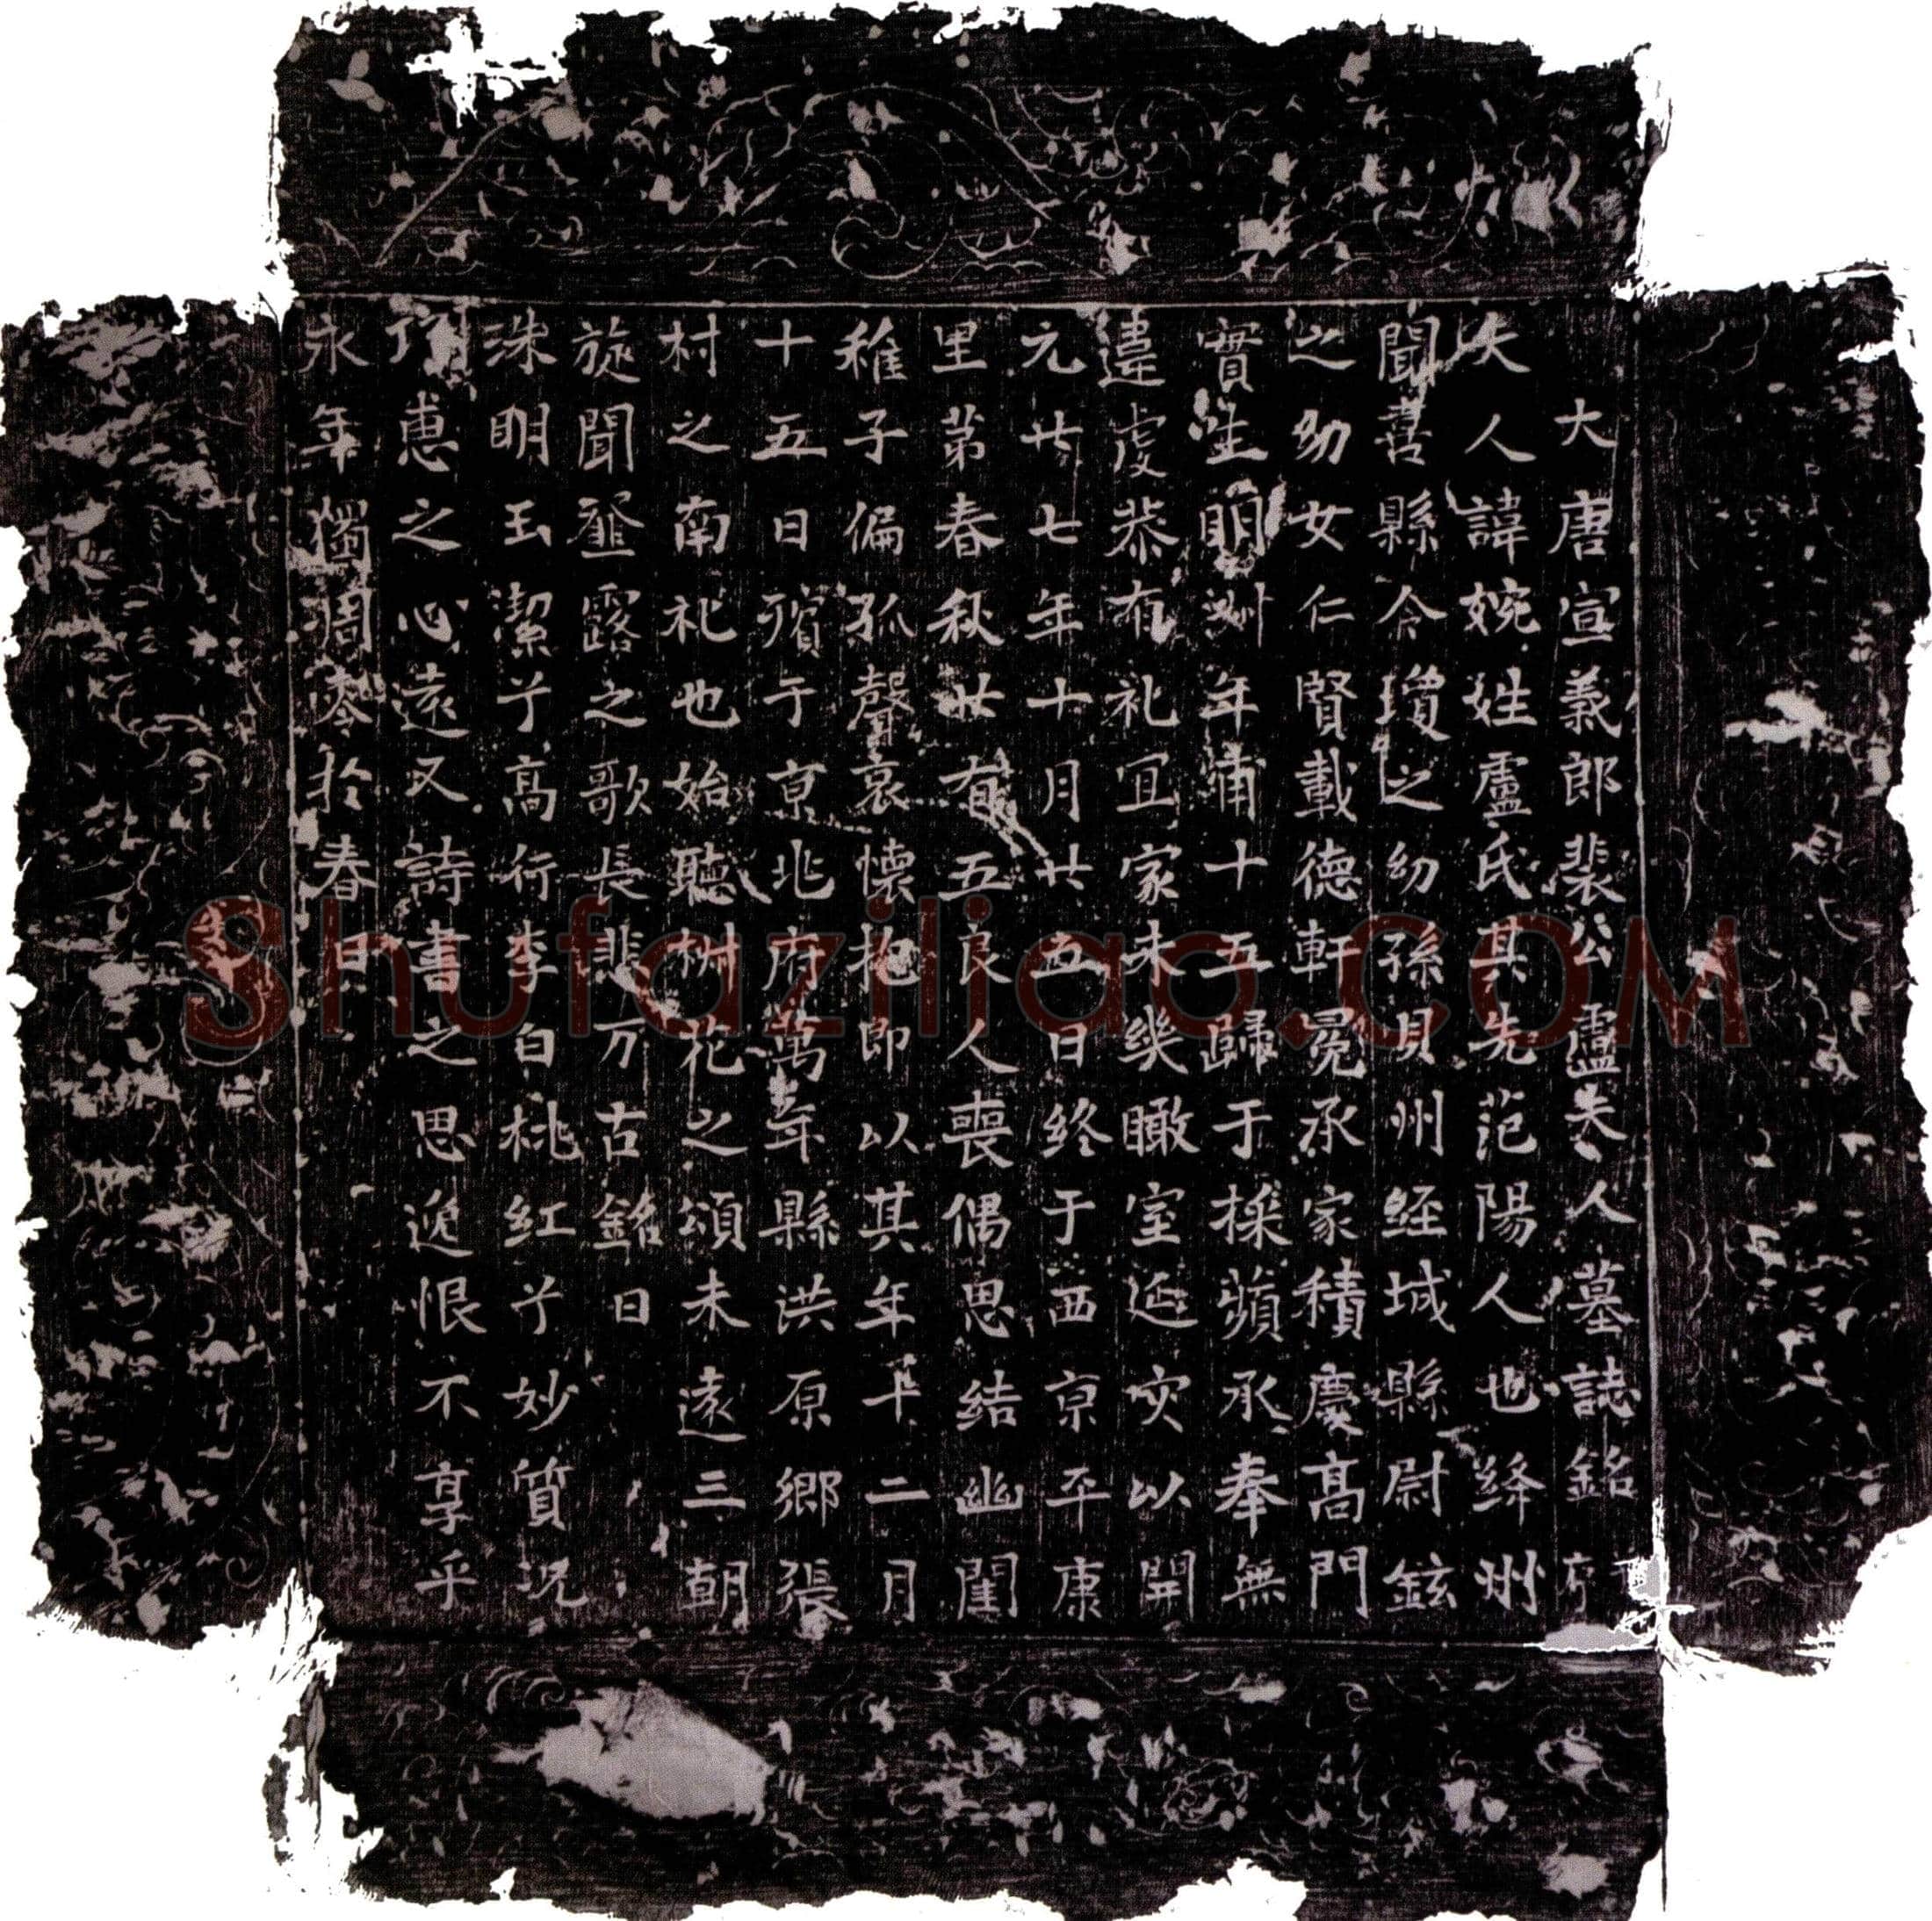 大唐宣義郎裴公盧夫人墓誌銘序
夫人諱婉姓盧氏其先范陽人也絳州
聞喜縣令瓊之幼孫貝州經城縣尉鉉
之幼女仁賢載德軒冕承家積慶高門
實生明淑年甫十五歸于採蘋承奉無
違虔恭有礼宜家未幾瞰室延灾以開
元廿七年十月廿五日終于西京平康
里第春秋廿有五良人喪偶思結幽閨
稚子偏孤聲哀懷抱即以其年十二月
十五日殯于京兆府萬年縣洪原鄉張
村之南礼也始聽樹花之頌未遠三朝
旋聞薤露之歌長悲万古銘曰
洙明玉潔兮高行李白桃紅兮妙質況
乃惠之心遠又詩書之思逸恨不享乎
永年獨凋零於春日
Shufaziliao.COM